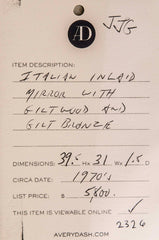 JJG
AD
ITEM DESCRIPTION:
ITALIAN INLAID
MIRROR WITH
GILTWOOD AND
GILT BRONZE
DIMENSIONS: 39.5 Hx 31 Wx 1.5 D
CIRCA DATE: 1970'S
LIST PRICE: $ 5,800.
THIS ITEM IS VIEWABLE ONLINE ✓
2326
AVERYDASH.COM